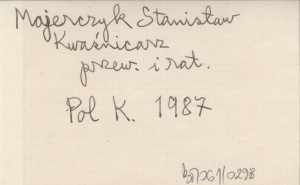 Majerczyk Stanisław
Kwaśnicarz
przew. i rat.
Pol K. 1987